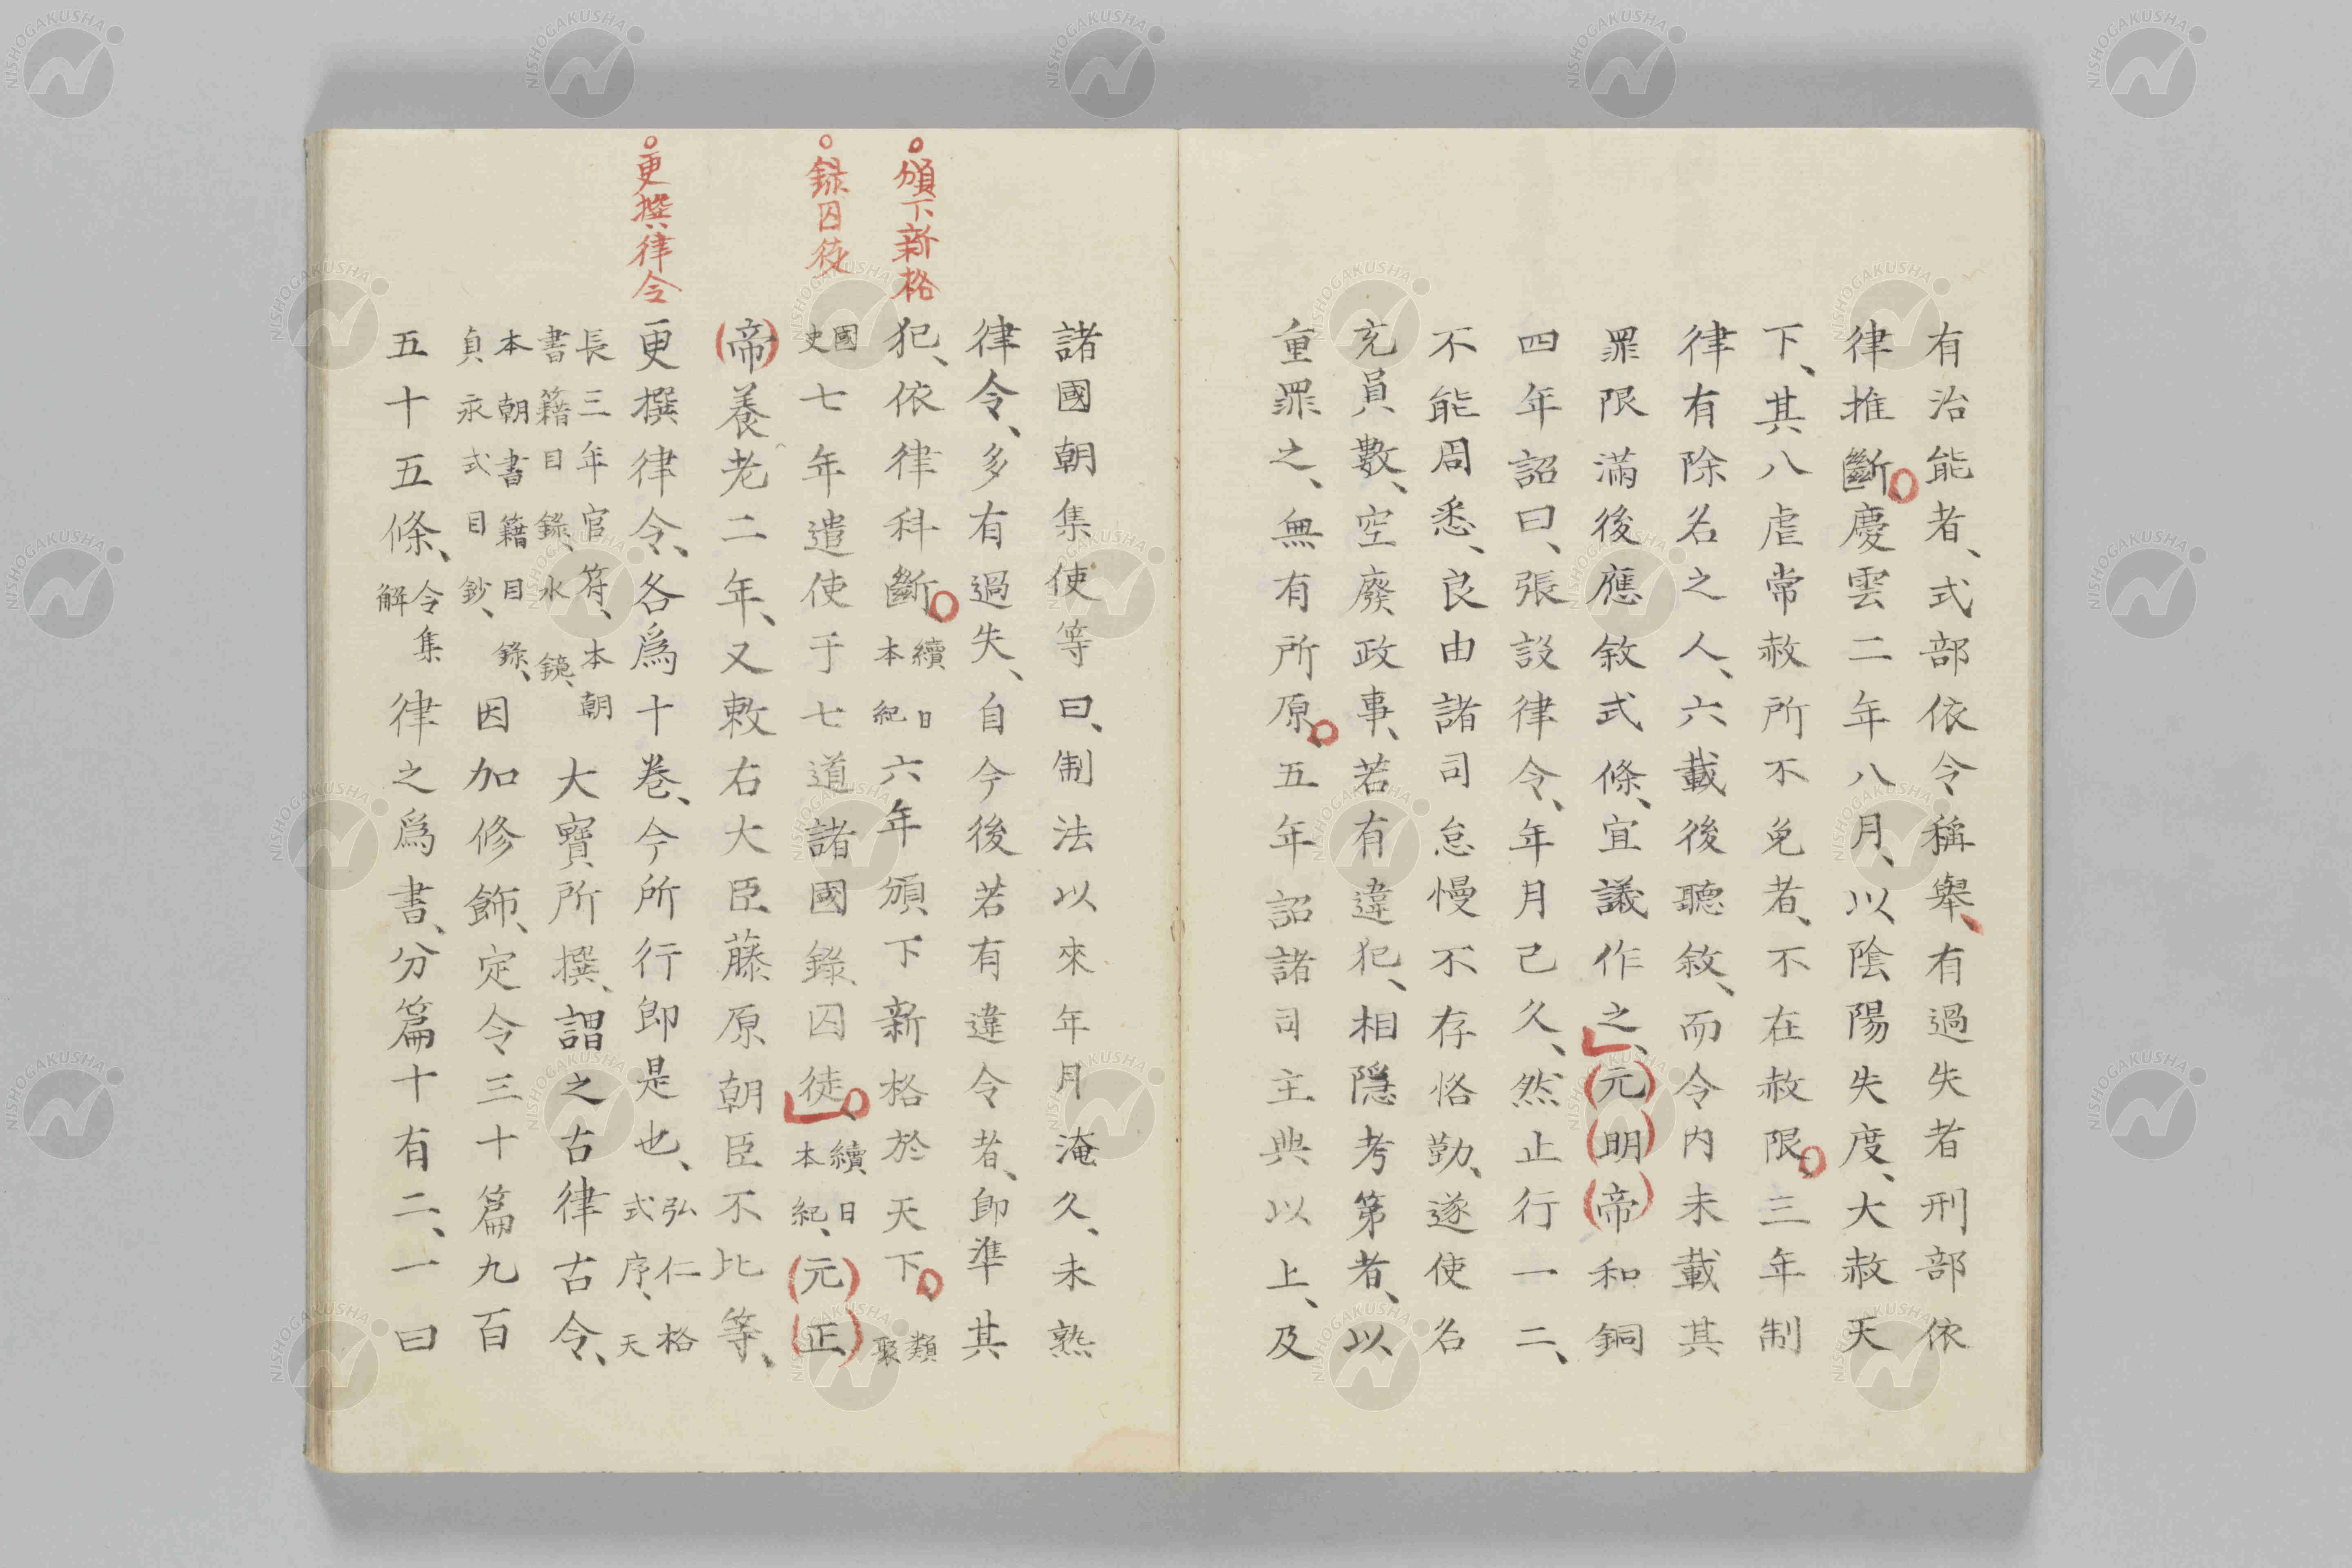 有治能者、式部依令稱舉、有過失者刑部依
律推斷。慶雲二年八月、以陰陽失度、大赦天
下、其八虐常赦所不免者、不在赦限。三年制
律有除名之人、六載後聽敘、而令内未載其
罪限滿後應敘式條、宜議作之、(元)(明)(帝)和銅
四年詔曰、張設律令、年月已久、然止行一二、
不能周悉、良由諸司怠慢不存恪勤、遂使名
充員數、空廢政事、若有違犯、相隠考第者、以
重罪之、無有所原。五年詔諸司主典以上、及
諸國朝集使等曰、制法以來年月淹久、未熟
律令、多有過失、自今後若有違令者、即準其
。頒下新格
犯、依律科斷。續日本紀六年頒下新格於天下。類聚
。録囚徒
國史七年遣使于七道諸國錄囚徒。續日本紀、(元)(正)
(帝)養老二年、又敕右大臣藤原朝臣不比等、
。更撰律令
更撰律令、各爲十卷、今所行即是也、弘仁格式序、天
長三年官符、本朝書籍目錄、水鏡、大寶所撰、謂之古律古令、
本朝書籍目錄、貞永式目鈔、因加修飾、定令三十篇九百
五十五條、令集解律之爲書、分篇十有二、一曰
NISHOGAKUSHA